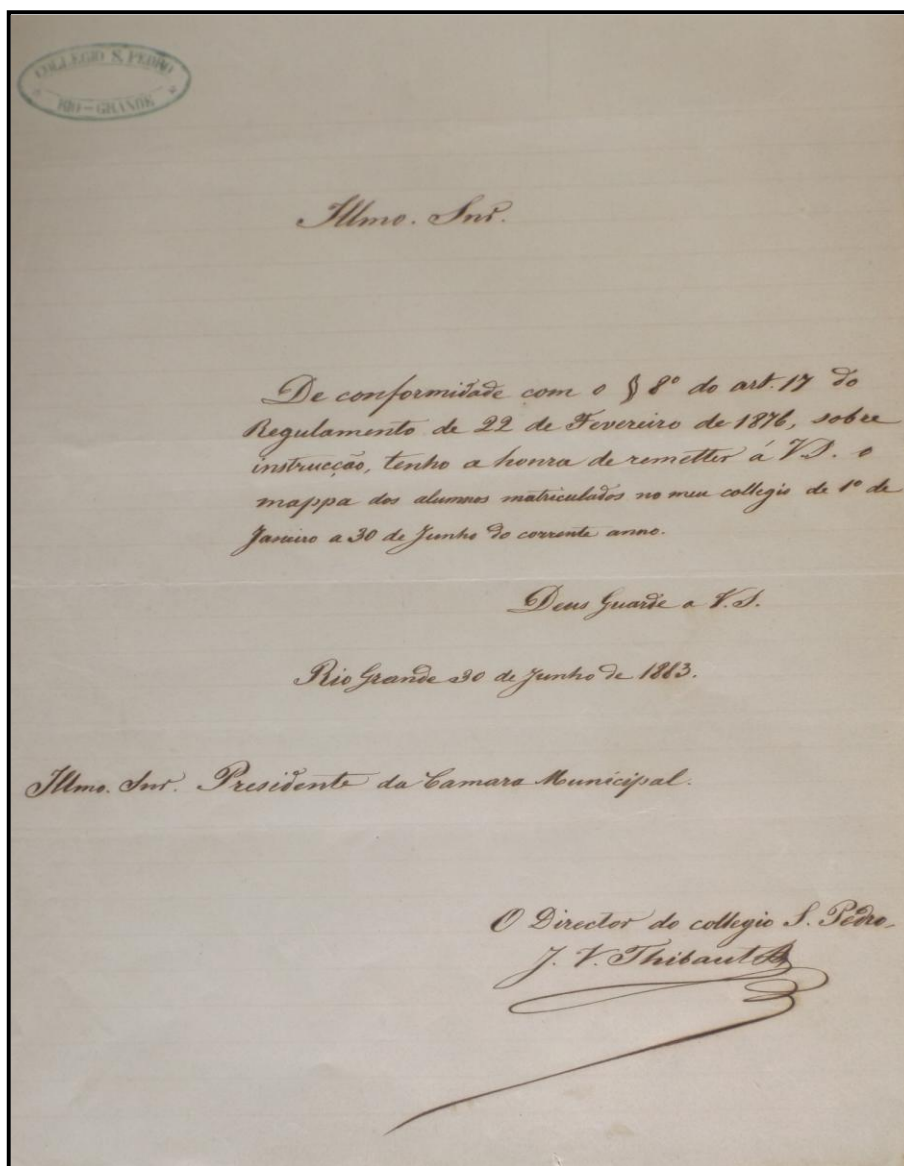 COLLEGIO S. PEDRO
RIO-GRANDE
Illmo. Snr.
De conformidade com o § 8º do art. 17 do
Regulamento de 22 de Fevereiro de 1876, sobre
instrucção, tenho a honra de remetter á V.S. o
mappa dos alumnos matriculados no meu collegio de 1º de
Janeiro a 30 de Junho do corrente anno.
Deus Guarde a V.S.
Rio Grande 30 de Junho de 1883.
Illmo. Snr. Presidente da Camara Municipal.
O Director do collegio S. Pedro.
J. V. Thibaut